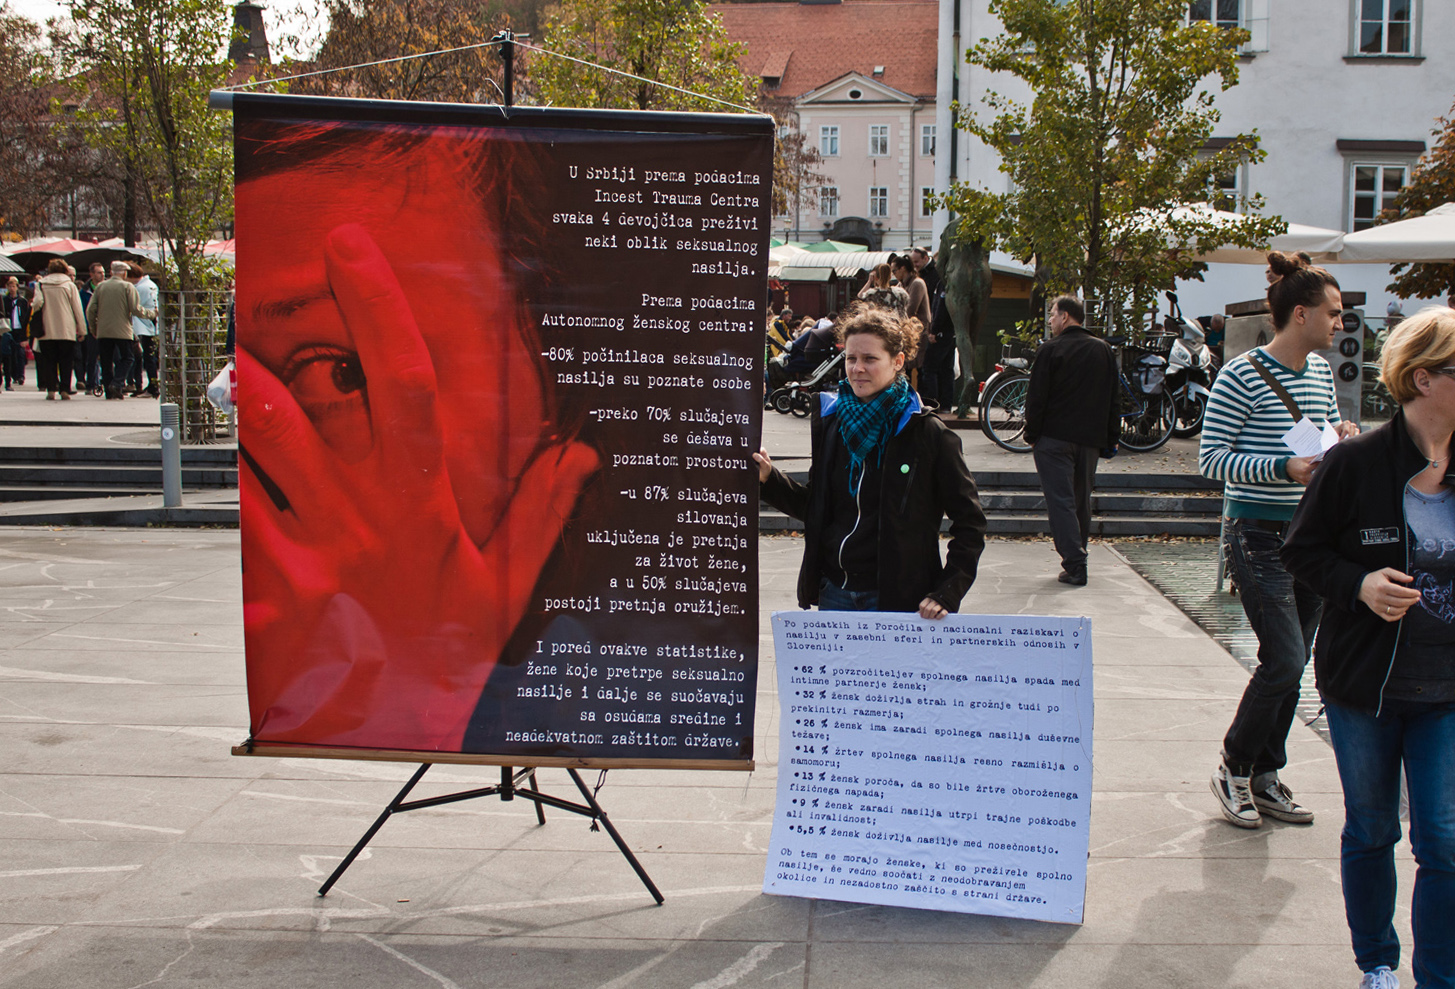 U Srbiji prema podacima
Incest Trauma Centra
svaka 4 devojčica preživi
neki oblik seksualnog
nasilja.
Prema podacima
Autonomnog ženskog centra:
-80% počinilaca seksualnog
nasilja su poznate osobe
-preko 70% slučajeva
se dešava u
poznatom prostoru
-u 87% slučajeva
silovanja
uključena je pretnja
za život žene,
a u 50% slučajeva
postoji pretnja oružijem.
I pored ovakve statistike,
žene koje pretrpe seksualno
nasilje i dalje se suočavaju
sa osudama sredine i
neadekvatnom zaštitom države.
Po podatkih iz Poročila o nacionalni raziskavi o
nasilju v zasebni sferi in partnerskih odnosih v
Sloveniji:
•62 % povzročiteljev spolnega nasilja spada med
intimne partnerje žensk;
•32 % žensk doživlja strah in grožnje tudi po
prekinitvi razmerja;
•26 % žensk ima zaradi spolnega nasilja duševne
težave;
•14 % žrtev spolnega nasilja resno razmišlja o
samomoru;
•13 % žensk poroča, da so bile žrtve oboroženega
fizičnega napada;
•9 % žensk zaradi nasilja utrpi trajne poškodbe
ali invalidnost;
•5,5 % žensk doživlja nasilje med nosečnostjo.
Ob tem se morajo ženske, ki so preživele spolno
nasilje, še vedno soočati z neodobravanjem
okolice in nezadostno zaščito s strani države.